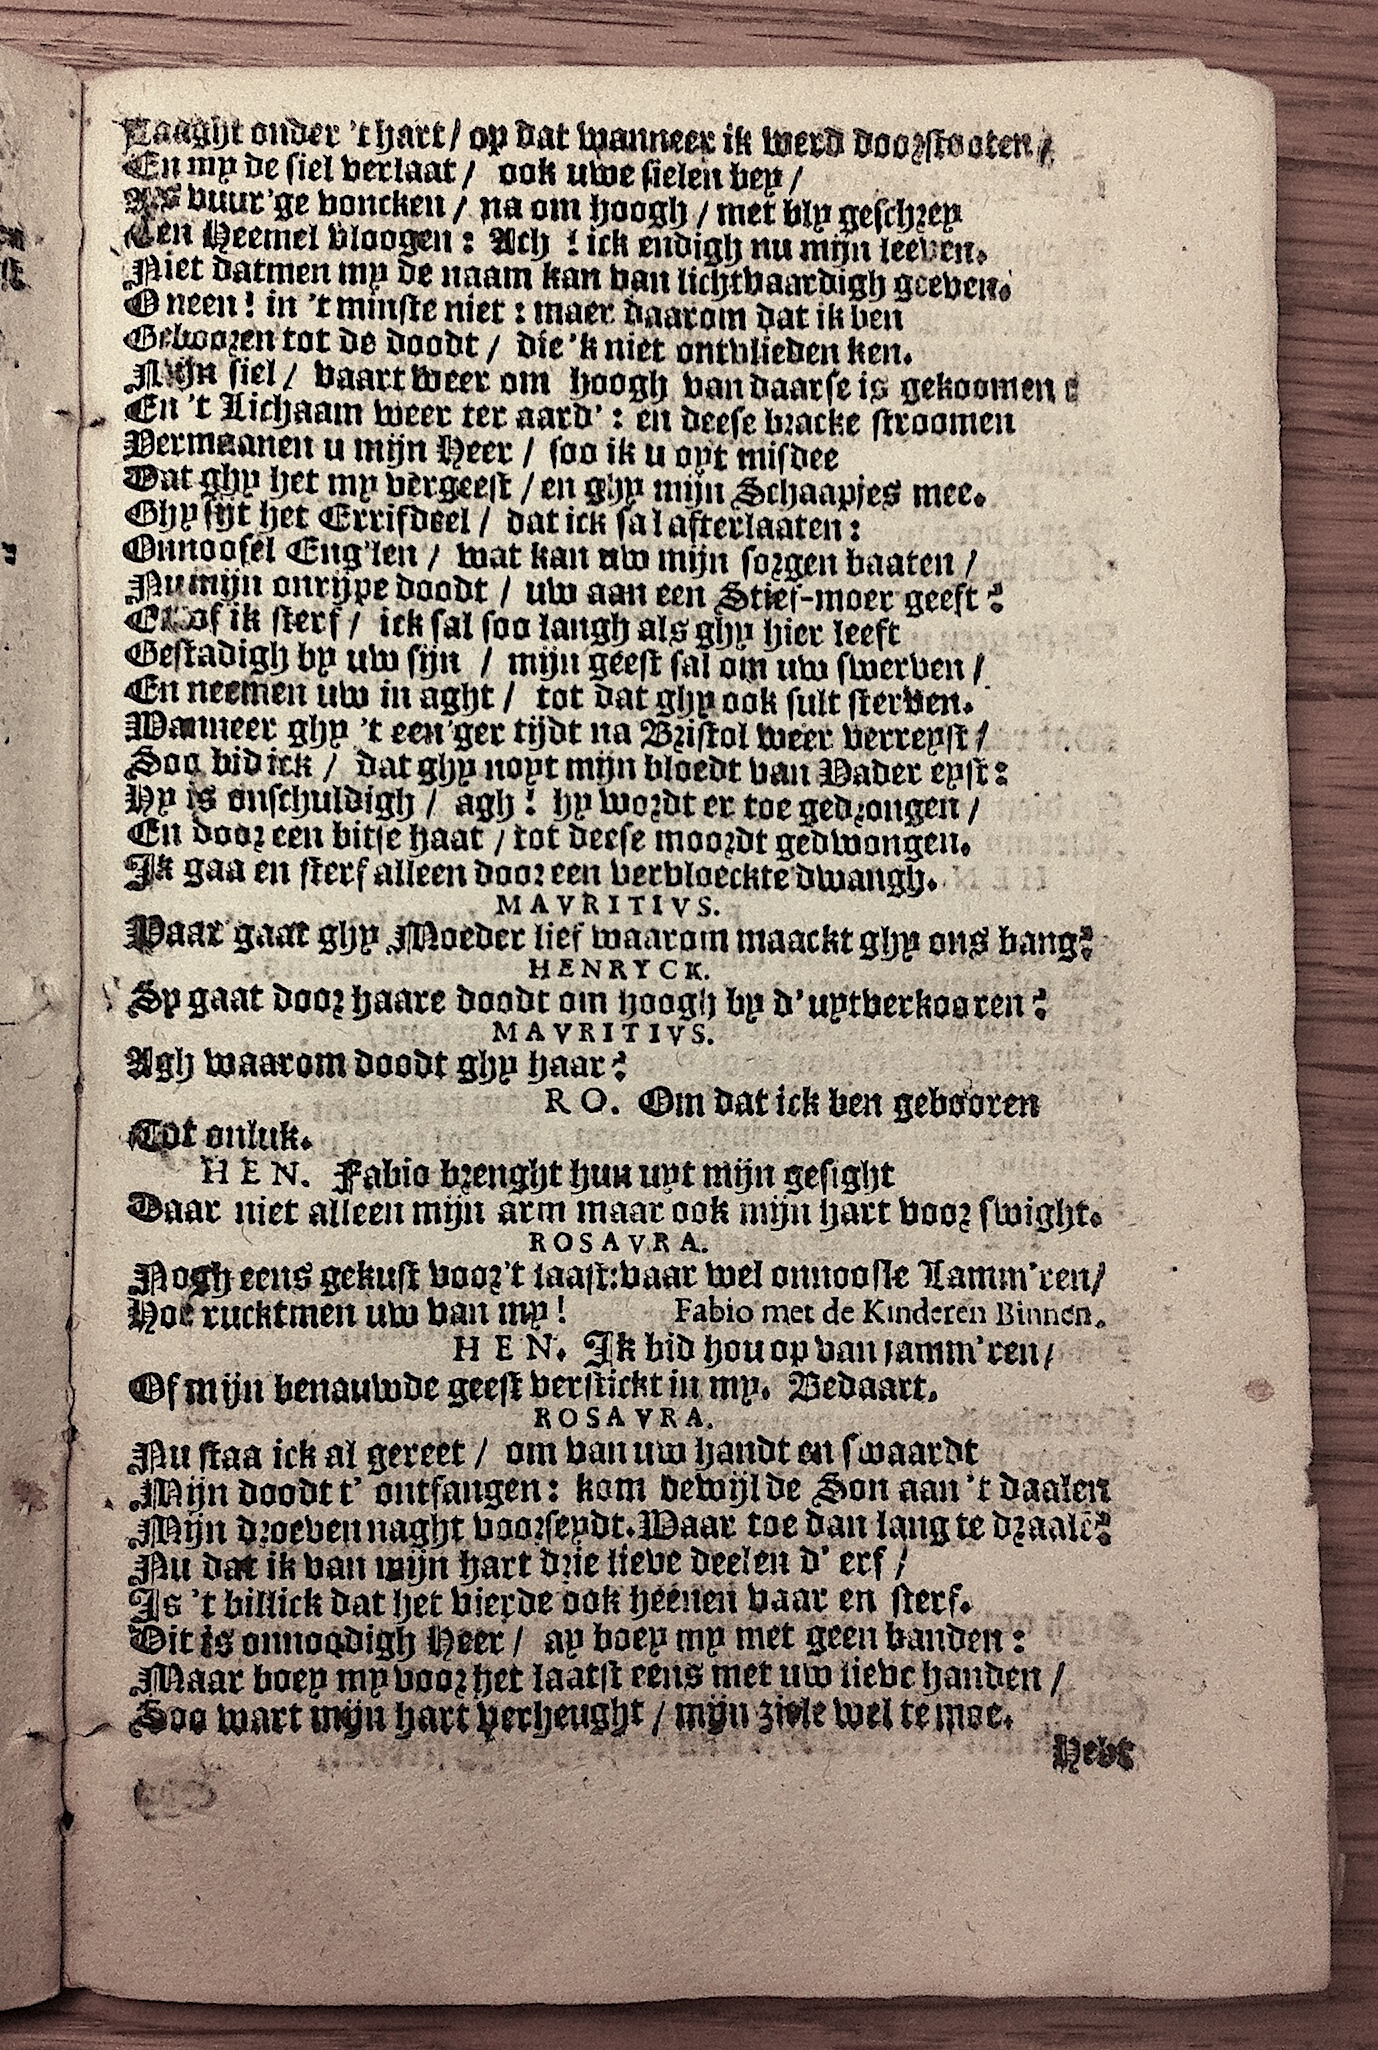 Laaght onder 't hart / op dat wanneer ik werd doorstooten /
En my de siel verlaat / ook uwe sielen bey /
Als vuur'ge voncken / na om hoogh / met bly geschrey
Ten Heemel vloogen : Ach ! ick endigh nu mijn leeven.
Niet datmen my de naam kan van lichtvaardigh geeven.
O neen ! in 't minste niet : maer daarom dat ik ben
Gebooren tot de doodt / die 'k niet ontvlieden ken.
Mijn siel / vaart weer om hoogh van daarse is gekoomen :
En 't Lichaam weer ter aard' : en deese bracke stroomen
Vermaanen u mijn Heer / soo ik u oyt misdee
Dat ghy het my vergeeft / en ghy mijn Schaapjes mee.
Ghy sijt het Errifdeel / dat ick sal afterlaaten :
Onnoosel Eng'len / wat kan uw mijn sorgen baaten /
Nu mijn onrijpe doodt / uw aan een Stief-moer geeft ?
En of ik sterf / ick sal soo langh als ghy hier leeft
Gestadigh by uw sijn / mijn geest sal om uw swerven /
En neemen uw in aght / tot dat ghy ook sult sterven.
Wanneer ghy 't een'ger tijdt na Bristol weer verreyst /
Soo bid ick / dat ghy noyt mijn bloedt van Vader eyst :
Hy is onschuldigh / agh ! hy wordt er toe gedrongen /
En door een bitse haat / tot deese moordt gedwongen.
Ik gaa en sterf alleen door een vervloeckte dwangh.
MAVRITIVS.
Waar gaat ghy Moeder lief waarom maackt ghy ons bang?
HENRYCK.
Sy gaat door haare doodt om hoogh by d'uytverkooren ?
MAVRITIVS.
Agh waarom doodt ghy haar ?
RO. Om dat ick ben gebooren
Tot onluk.
HEN. Fabio brenght hun uyt mijn gesight
Daar niet alleen mijn arm maar ook mijn hart voor swight.
ROSAVRA.
Nogh eens gekust voor't laast: vaar wel onnoosle Lamm'ren /
Hoe rucktmen uw van my ! Fabio met de Kinderen Binnen.
HEN. Ik bid hou op van jamm'ren /
Of mijn benauwde geest verstickt in my. Bedaart.
ROSAVRA.
Nu staa ick al gereet / om van uw handt en swaardt
Mijn doodt t' ontfangen : kom dewijl de Son aan 't daalen
Mijn droeven naght voorseydt. Waar toe dan lang te draalē?
Nu dat ik van mijn hart drie lieve deelen d' erf /
Is 't billick dat het vierde ook heenen vaar en sterf.
Dit is onnoodigh Heer / ay boey my met geen banden :
Maar boey my voor het laatst eens met uw lieve handen /
Soo wart mijn hart verheught / mijn ziele wel te moe.
Hebt